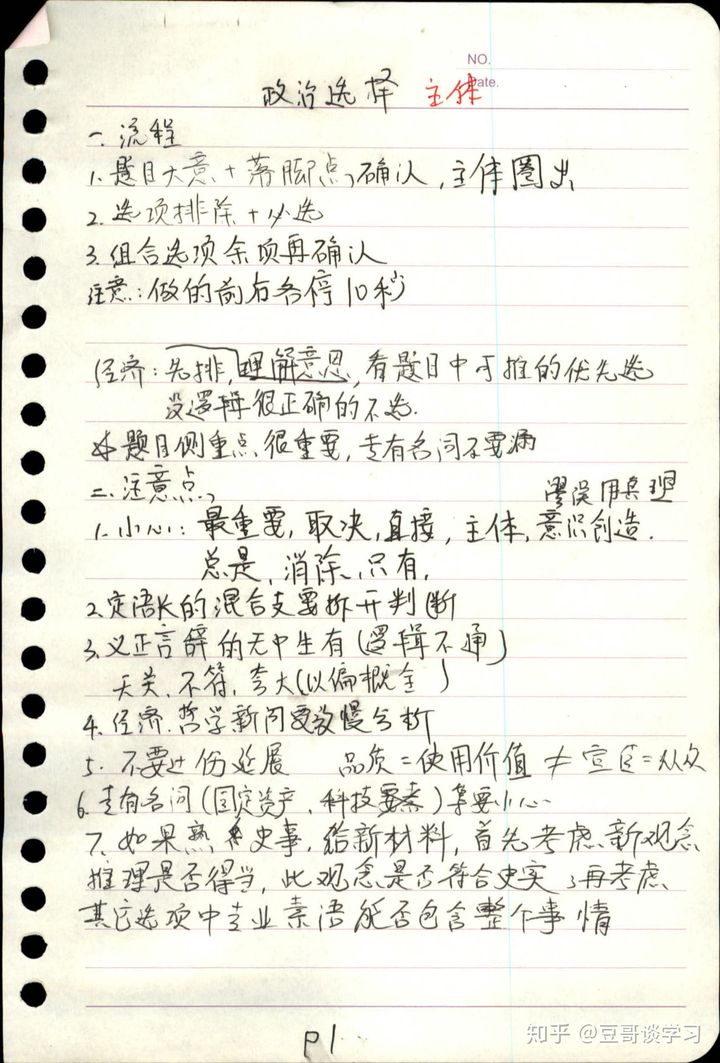 NO.
Date.
政治选择 主体
一、流程
1. 题目大意+落脚点,确认,主体圈出
2. 选项排除+必选
3. 组合选项余项再确认
注意:做的前后各停10秒
经济:先排,理解意思,看题目中可推的优先选
没逻辑很正确的不选.
题目侧重点很重要,专有名词不要漏
二、注意点,
谬误用真理
1. 小心:最重要,取决,直接,主体,意识创造.
总是,消除,只有,
2. 定语长的混合支要拆开判断
3. 义正言辞的无中生有(逻辑不通)
无关、不符、夸大(以偏概全)
4. 经济、哲学新问要放慢分析
5. 不要过份延展 品质=使用价值≠宣传=从众
6. 专有名词(固定资产、科技要素)等要小心
7. 如果熟史事,给新材料,首先考虑新观念
推理是否得当,此观念是否符合史实,再考虑
其它选项中专业素语能否包含整个事情
P1
知乎 @豆哥谈学习